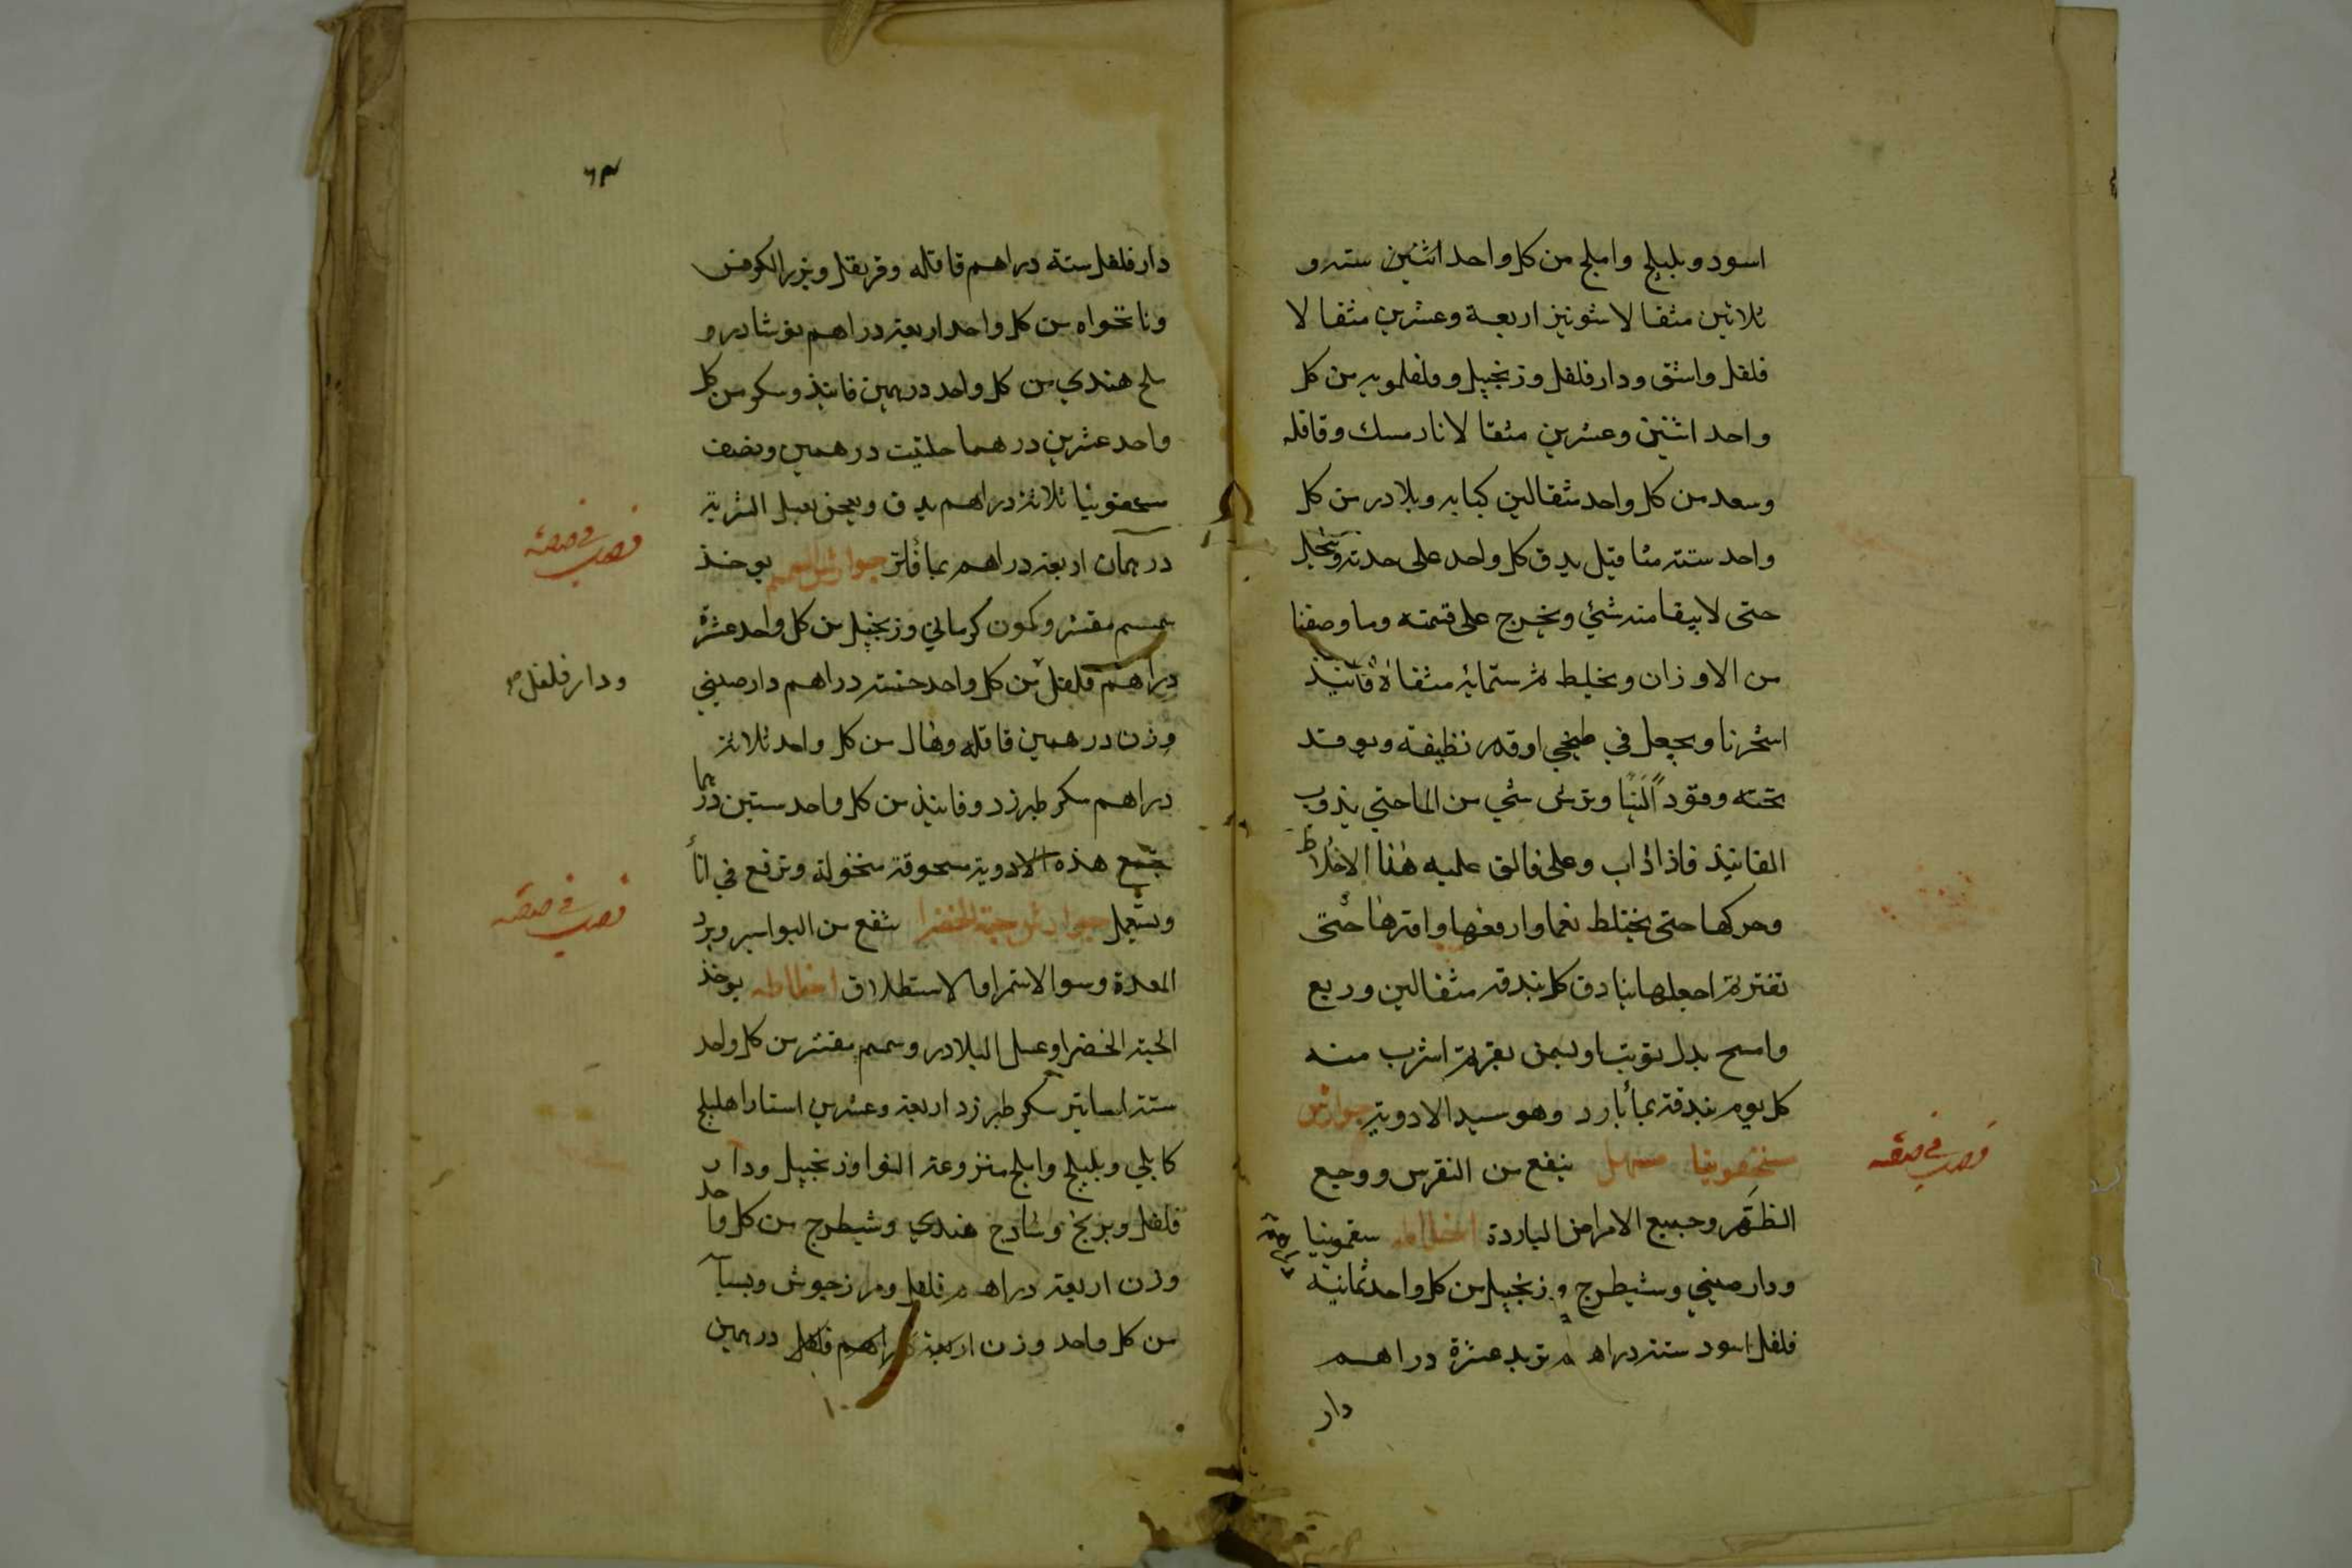 اسود وبليلج واملج من كل واحد اثنين ستة و
ثلاثين مثقالا شونيز اربعة وعشرين مثقالا
فلفل واشق ودارفلفل وزنجبيل وفلفلمويه من كل
واحد اثنين وعشرين مثقالا نارمسك وقاقله
وسعد من كل واحد مثقالين كبابه وبلادر من كل
واحد ستة مثاقيل يدق كل واحد على حدته وينخل
حتى لا يبقا منه شئ ويخرج على قيمته وما وصفنا
من الاوزان ويخلط ثم ستمائة مثقالا فانيذ
ويجعل في طنجير او قدر نظيفة ويوقد
تحته وقودا لينا ويرش شي من الما حتى يذوب
الفانيذ فاذا ذاب وغلى فالق عليه هذا الاخلاط
وحركها حتى يختلط نعما وارفعها واقرها حتى
تفتر ثم اجعلها بنادق كل بندقة مثقالين وربع
وامسح يدك بزيت او بسمن بقر ثم اشرب منه
كل يوم بندقة بماء بارد وهو سيد الادوية جوارش
مسهل ينفع من النقرس ووجع
الظهر وجميع الامراض الباردة اخلاطه سقمونيا
ودارصيني وشيطرج وزنجبيل من كل واحد ثمانية
فلفل اسود ستة دراهم تربد عشرة دراهم
دار
٦٣
دارفلفل ستة دراهم قاقله وقرنفل وبزر الكرفس
ونانخواه من كل واحد اربعة دراهم نوشادر و
ملح هندي من كل واحد درهمين فانيذ وسكر من كل
واحد عشرين درهما حلتيت درهمين ونصف
سقمونيا ثلاثة دراهم يدق ويعجن بعسل الشربة
درهمان اربعة دراهم بماء فاتر جوارش السمسم يوخذ
سمسم مقشر وكمون كرماني وزنجبيل من كل واحد عشرة
دراهم فلفل من كل واحد خمسة دراهم دارصيني
ودارفلفل صح
وزن درهمين قاقله وهال من كل واحد ثلاثة
دراهم سكر طبرزد وفانيذ من كل واحد ستين درهما
تجمع هذه الادوية مسحوقة منخولة وترفع في اناء
ويستعمل جوارش حبة الخضرا ينفع من البواسير وبرد
المعدة وسوالاستمرا والاستطلاق اخلاطه يوخذ
الحبة الخضرا وعسل البلادر وسمسم مقشر من كل واحد
ستة اساتير سكر طبرزد اربعة وعشرين استارا هليلج
كابلي وبليلج واملج منزوعة النوا وزنجبيل ودار
فلفل وبرنج وساذج هندي وشيطرج من كل واحد
وزن اربعة دراهم فلفل ومرزجوش وبسبا
من كل واحد وزن اربعة دراهم فلفل درهمين